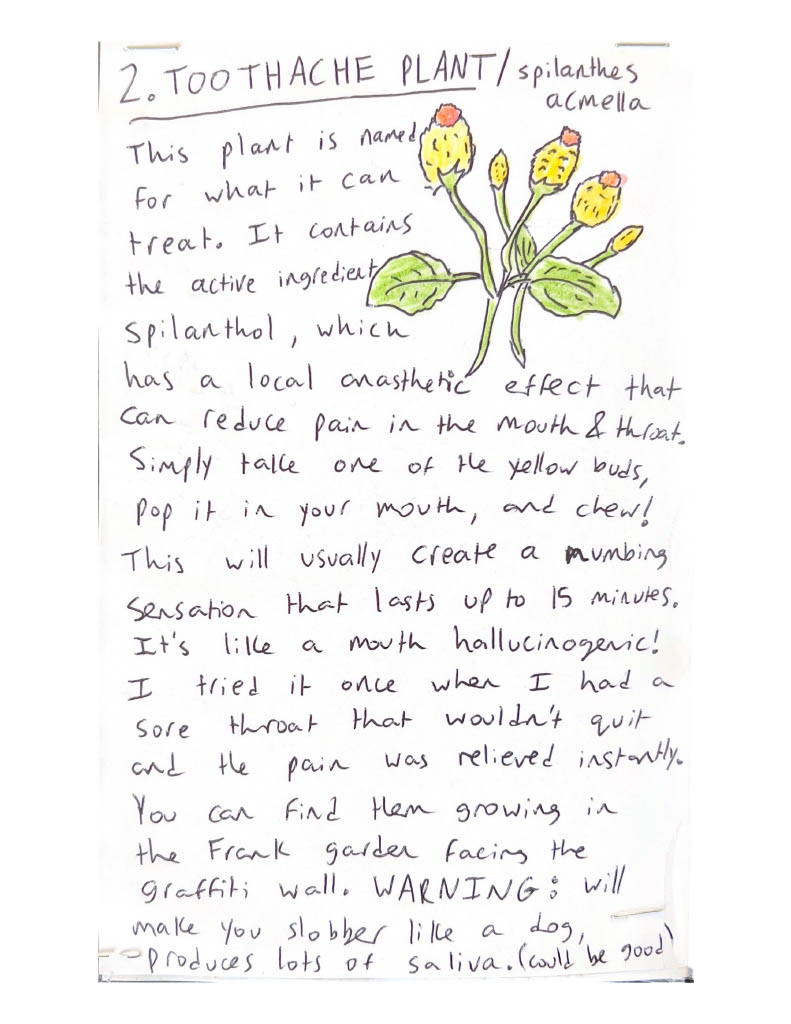 2. TOOTHACHE PLANT / spilanthes
acmella
This plant is named
for what it can
treat. It contains
the active ingredient
spilanthol, which
has a local anasthetic effect that
can reduce pain in the mouth & throat.
Simply take one of the yellow buds,
pop it in your mouth, and chew!
This will usually create a numbing
sensation that lasts up to 15 minutes.
It's like a mouth hallucinogenic!
I tried it once when I had a
sore throat that wouldn't quit
and the pain was relieved instantly.
You can find them growing in
the Frank garden facing the
graffiti wall. WARNING: will
make you slobber like a dog,
-produces lots of saliva. (could be good)